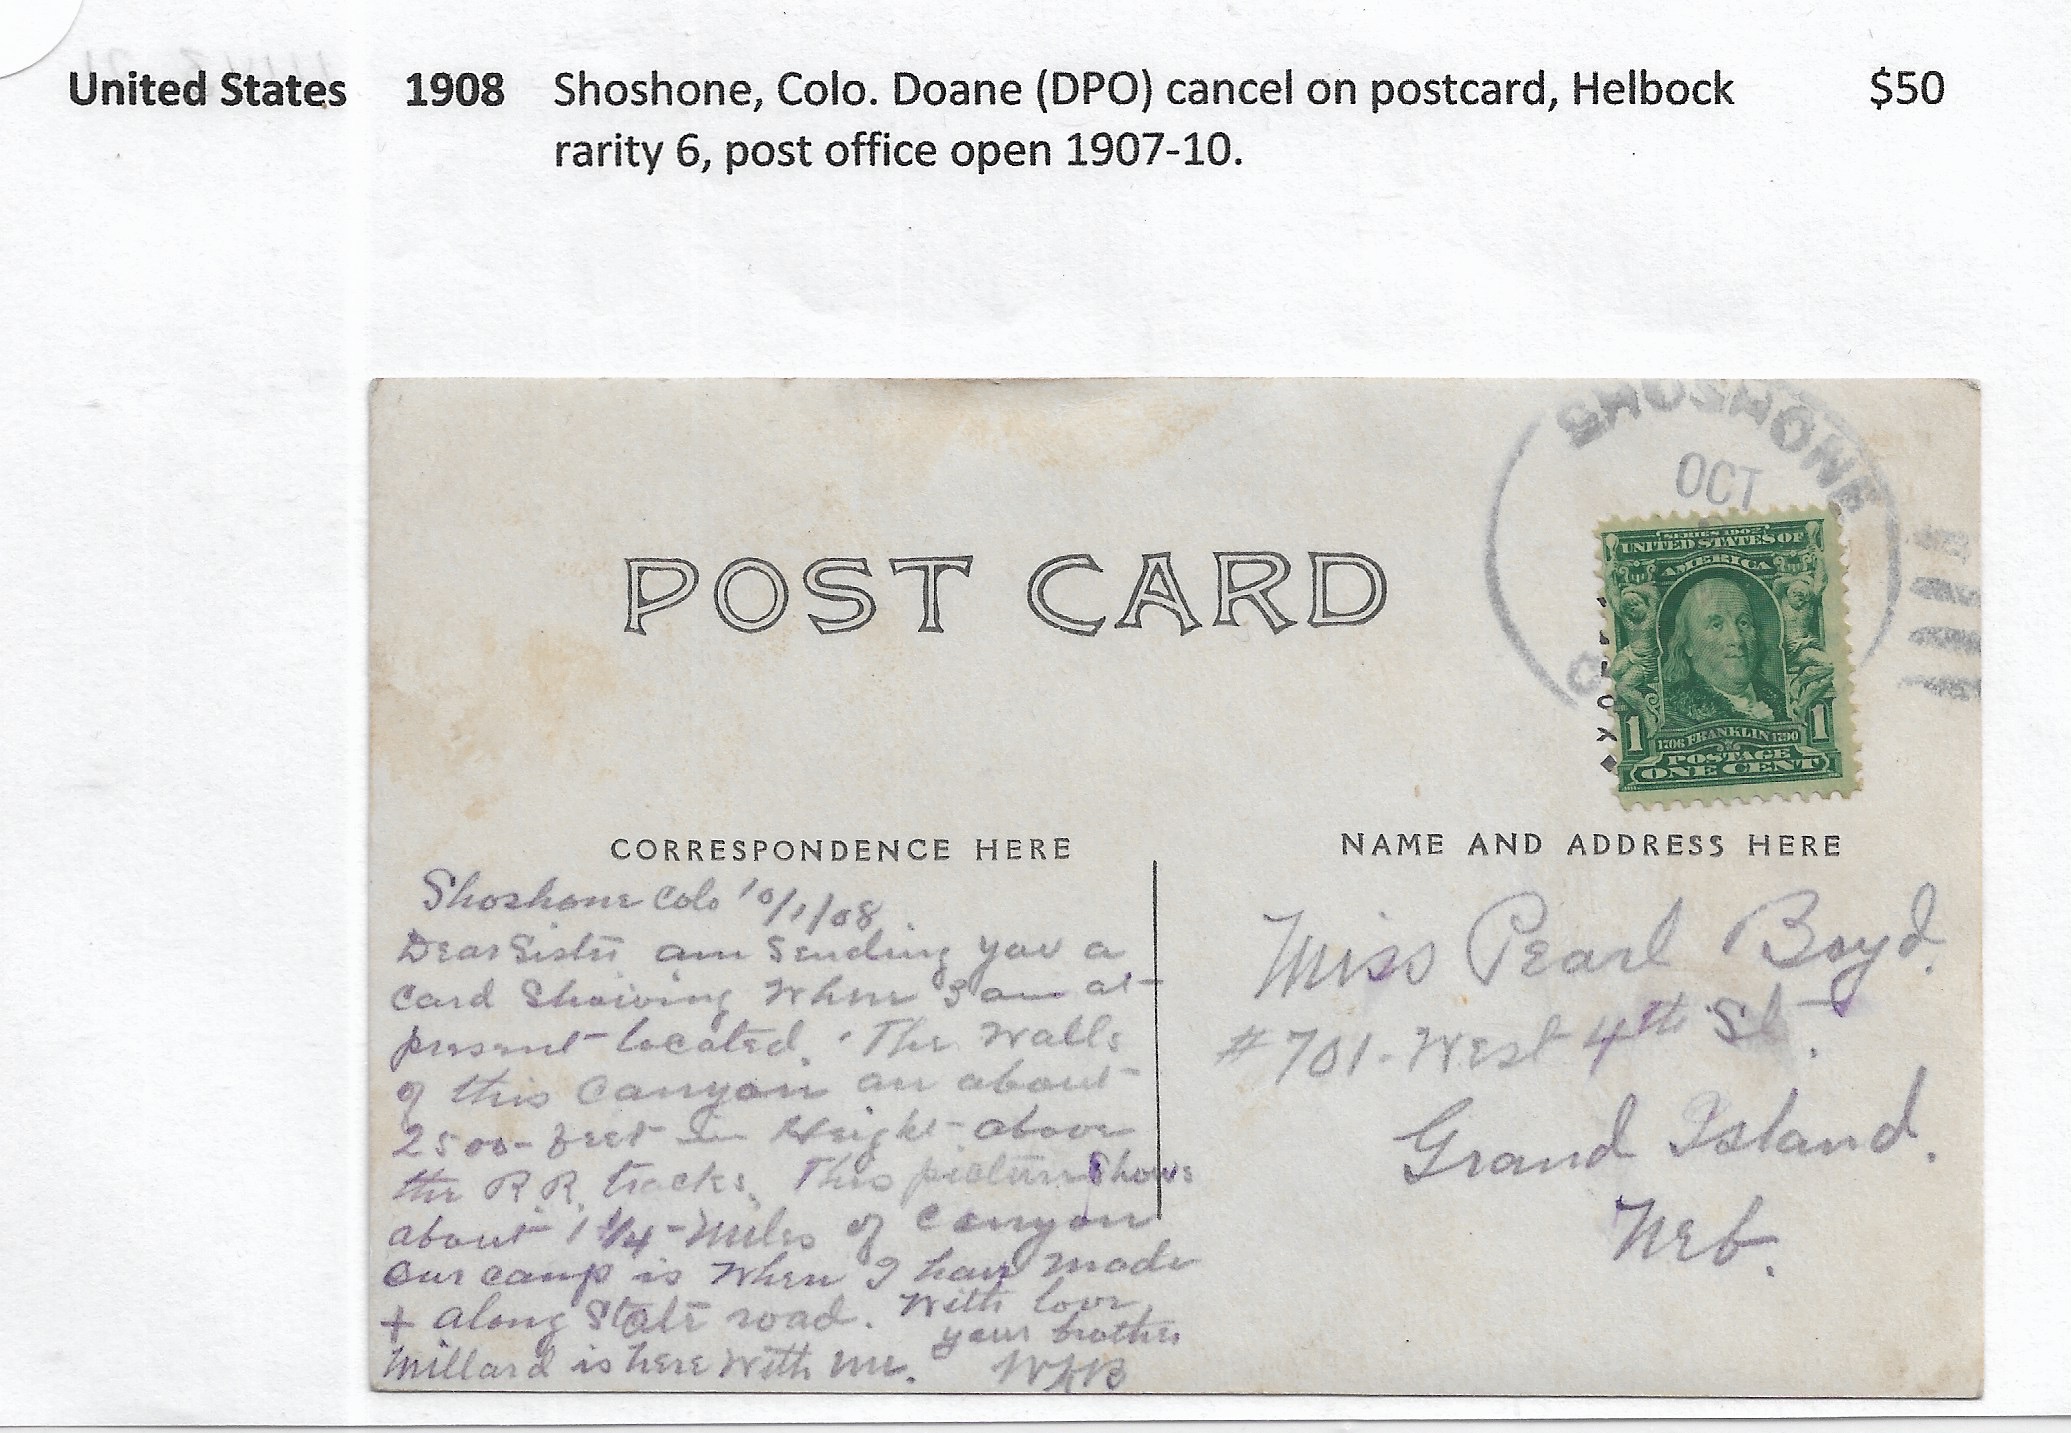 United States 1908 Shoshone, Colo. Doane (DPO) cancel on postcard, Helbock $50
rarity 6, post office open 1907-10.
SHOSHONE
OCT
POST CARD
SERIES 1902
UNITED STATES OF
AMERICA
1 1706 FRANKLIN 1790 1
POSTAGE
ONE CENT
CORRESPONDENCE HERE
NAME AND ADDRESS HERE
Shoshone Colo 10/1/08
Dear Sister am sending you a
card showing where I am at
present located. The walls
of this canyon are about
2500 feet in Height above
the R.R. tracks. This picture shows
about 1 1/4 miles of canyon
our camp is where I have made
+ along State road. With love
your brother
Millard is here with me. WHB
Miss Pearl Boyd.
#701. West 4th St.
Grand Island.
Neb.